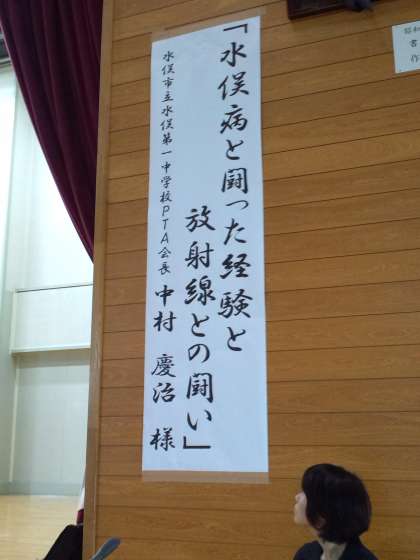 「水俣病と闘った経験と
放射線との闘い」
水俣市立水俣第一中学校PTA会長 中村 慶治 様
昭和
書
作